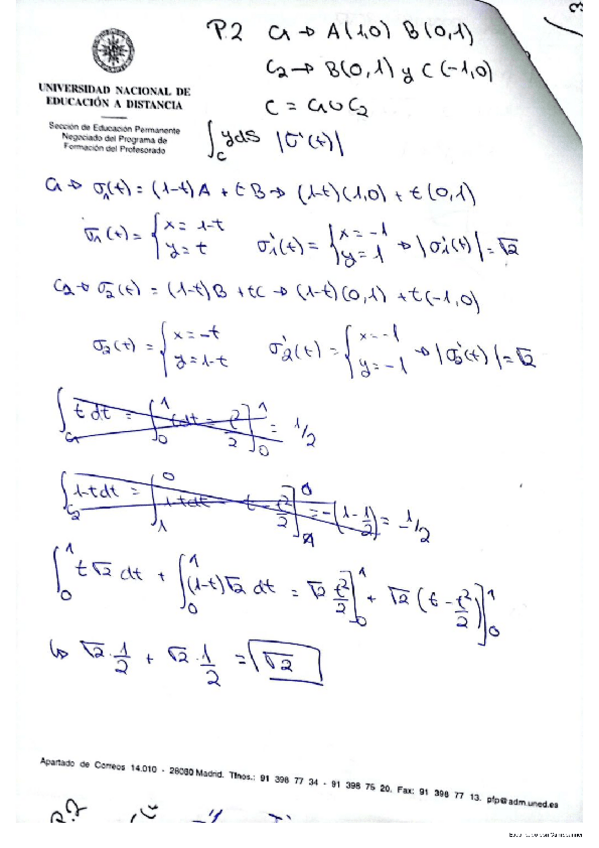 3
P.2 C1 → A(1,0) B(0,1)
C2 → B(0,1) y C(-1,0)
UNIVERSIDAD NACIONAL DE
EDUCACIÓN A DISTANCIA
C = C1 ∪ C2
Sección de Educación Permanente
Negociado del Programa de
Formación del Profesorado
∫_C yds |σ'(t)|
C1 → σ1(t) = (1-t)A + tB → (1-t)(1,0) + t(0,1)
σ1(t) = { x = 1-t y = t σ1'(t) = { x = -1 y = 1 → |σ1'(t)| = √2
C2 → σ2(t) = (1-t)B + tC → (1-t)(0,1) + t(-1,0)
σ2(t) = { x = -t y = 1-t σ2'(t) = { x = -1 y = -1 → |σ2'(t)| = √2
∫_C1 t dt = ∫_0^1 t dt = t²/2 ]_0^1 = 1/2
∫_C2 1-t dt = ∫_1^0 1-t dt = t - t²/2 ]_1^0 = -(1 - 1/2) = -1/2
∫_0^1 t√2 dt + ∫_0^1 (1-t)√2 dt = √2 t²/2 ]_0^1 + √2 (t - t²/2) ]_0^1
↳ √2 · 1/2 + √2 · 1/2 = √2
Apartado de Correos 14.010 - 28080 Madrid. Tfnos.: 91 398 77 34 - 91 398 75 20. Fax: 91 398 77 13. pfp@adm.uned.es